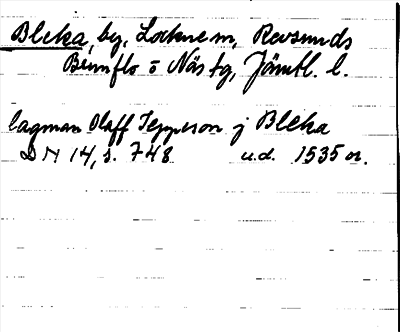 Bleka, by, Lockne sn, Revsunds
Brunflo o Näs tg, Jämtl. l.
lagman Olaff Jeppeson j Bleka
DN 14, s. 748 u.d. 1535 or.